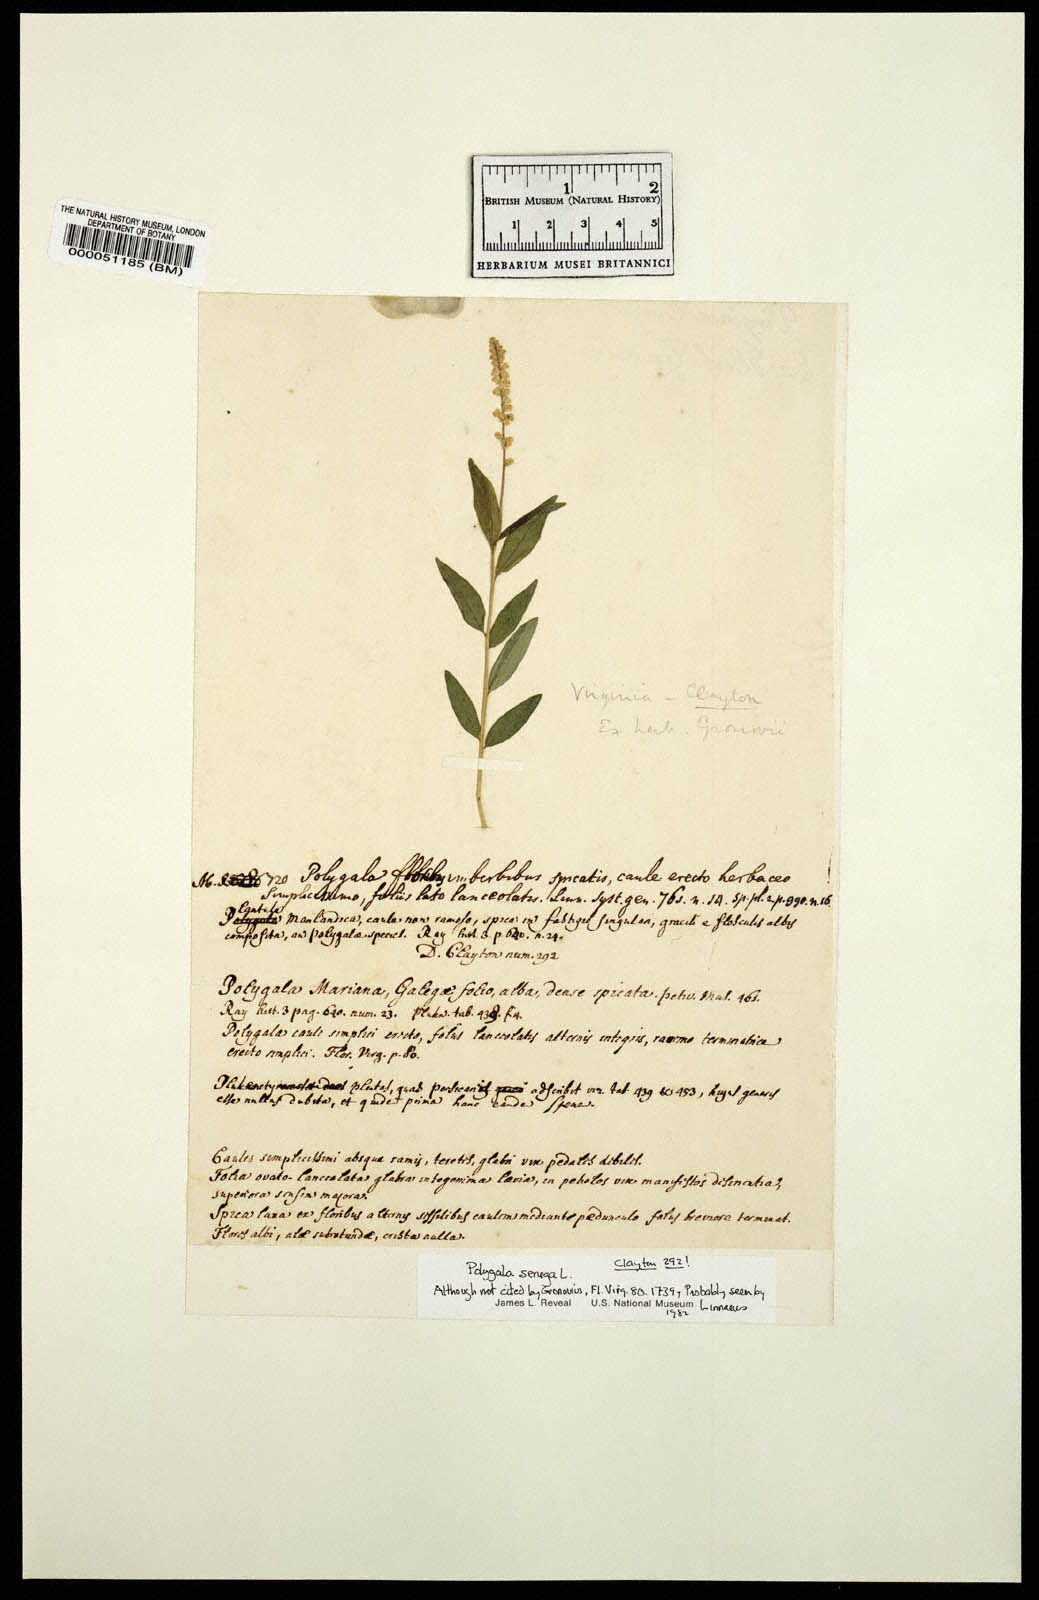 1 2
BRITISH MUSEUM (NATURAL HISTORY)
1 2 3 4 5
HERBARIUM MUSEI BRITANNICI
THE NATURAL HISTORY MUSEUM, LONDON
DEPARTMENT OF BOTANY
000051185 (BM)
Virginia - Clayton
Ex herb. Gronovii
720 Polygala imberbibus spicatis, caule erecto herbaceo
simplicissimo, foliis lato lanceolatis. Linn. Syst. gen. 761. n. 14. Sp. pl. 2. p. 990. n. 16.
Marilandica, caule non ramoso, spica in fastigio singulari, gracili e flosculis albis
composita, an polygalæ species. Ray hist. 3 p. 640. n. 24.
D. Clayton num. 292
Polygala Mariana, Galegæ folio, alba, dense spicata. petiv. Mus. 461.
Ray hist. 3 pag. 640. num. 23. Pluken. tab. 438. f. 4.
Polygala caule simplici erecto, foliis lanceolatis alternis integris, racemo terminatrice
erecto simplici. Flor. Virg. p. 80.
plantas, quas adscribit viz. tab. 439 453, hujus generis
esse nullus dubito, et prima hanc
Caules simplicissimi absque ramis, teretes, glabri vix pedales debiles.
Folia ovato-lanceolata glabra integerrima lævia, in petiolos vix manifestos desinentia,
superiora sensim majora.
Spica laxa ex floribus alternis sessilibus caulem mediante pedunculo foliis breviore terminat.
Flores albi, alæ subrotundæ, crista nulla.
Clayton 292!
Polygala senega L.
Although not cited by Gronovius, Fl. Virg. 80. 1739, Probably seen by
James L. Reveal U.S. National Museum Linnaeus
1982